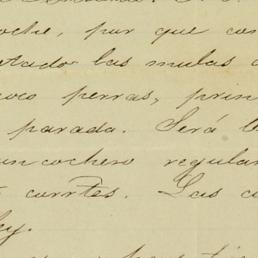 oche, por que con
tado las mulas
oco perras, prin
parada. Será
un cochero regular
currtes. Las
ey.